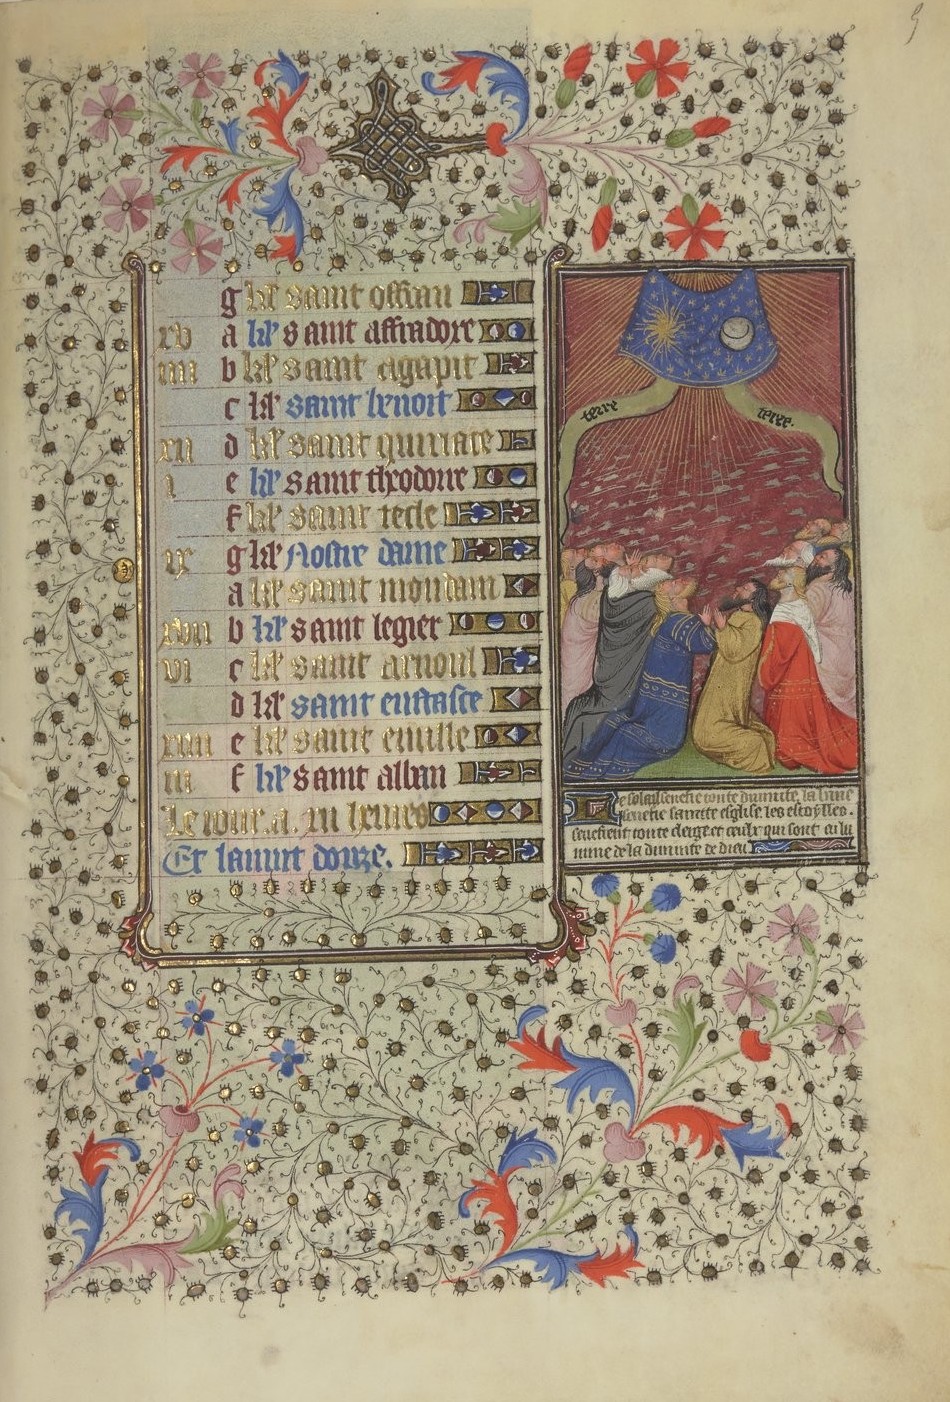 g kl' saint offran
xv a kl' saint affradoxe
iiii b kl' saint agapit
c kl' saint benoit
xii d kl' saint quiriace
i e kl' saint theodore
f kl' saint tecle
ix g kl' Nostre dame
a kl' saint mondain
xvii b kl' saint legier
vi c kl' saint arnoul
d kl' saint eustasce
xiiii e kl' saint
iii f kl' saint alban
Le iour. a. xii heures
Et la nuit douze.
terre
terre.
e soleil senefie toute diuinite. la lune
senefie saincte eglise. les estoylles.
senefient toute clerge et ceulx qui sont
mine de la diuinite de dieu